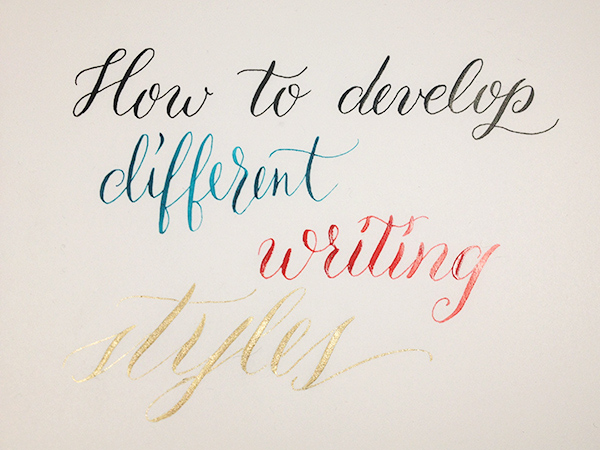 How to develop
different
writing
styles